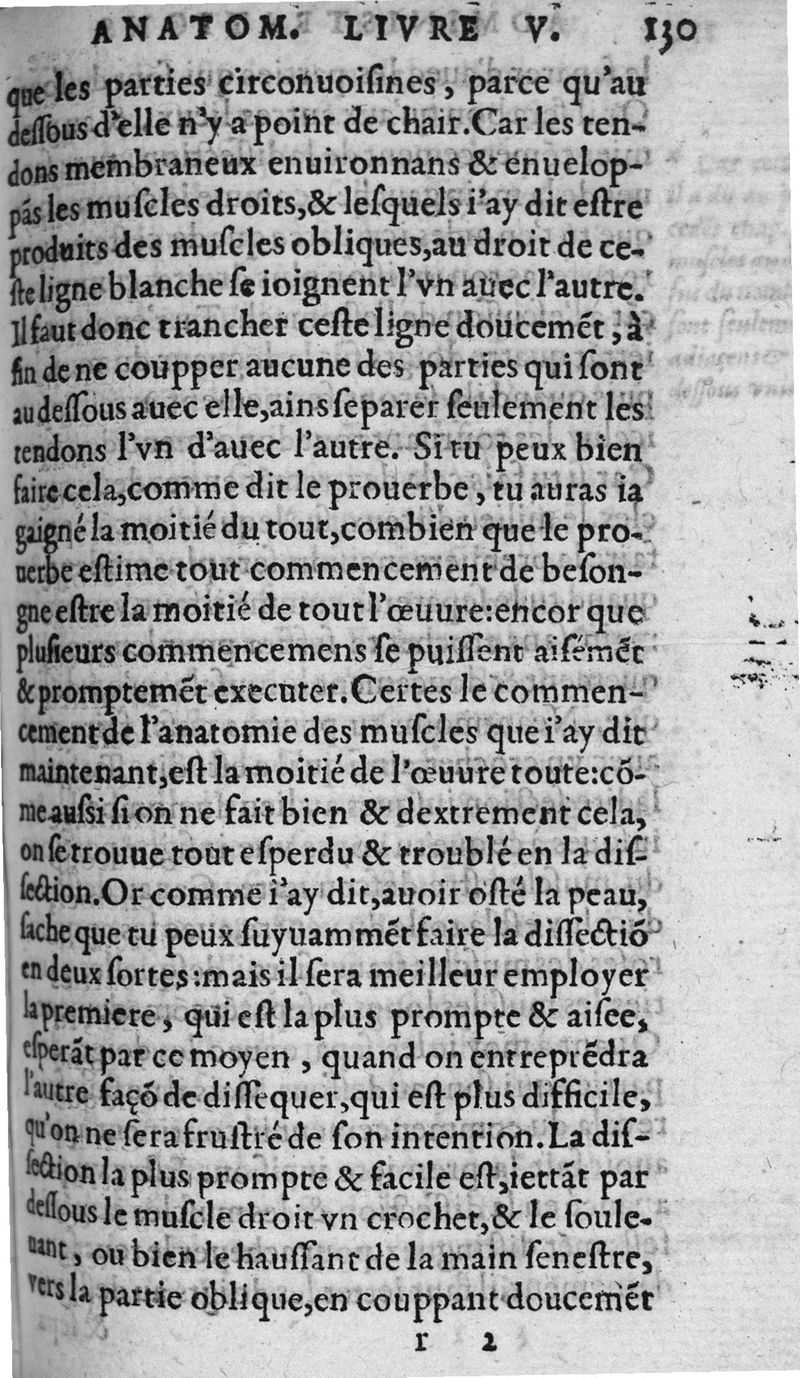 ANATOM. LIVRE V. 130
que les parties circonuoiſines, parce qu'au
deſſous d'elle n'y a point de chair. Car les ten-
dons membraneux enuironnans & enuelop-
pás les muſcles droits, & leſquels i'ay dit eſtre
produits des muſcles obliques, au droit de ce-
ſte ligne blanche ſe ioignent l'vn auec l'autre.
Il faut donc trancher ceſte ligne doucemẽt, à
fin de ne coupper aucune des parties qui ſont
au deſſous auec elle, ains ſeparer ſeulement les
tendons l'vn d'auec l'autre. Si tu peux bien
faire cela, comme dit le prouerbe, tu auras ia
gaigné la moitié du tout, combien que le pro-
uerbe eſtime tout commencement de beſon-
gne eſtre la moitié de tout l'œuure: encor que
pluſieurs commencemens ſe puiſſent aiſémẽt
& promptemẽt executer. Certes le commen-
cement de l'anatomie des muſcles que i'ay dit
maintenant, eſt la moitié de l'œuure toute: cõ-
me auſsi ſi on ne fait bien & dextrement cela,
on ſe trouue tout eſperdu & troublé en la diſ-
ſection. Or comme i'ay dit, auoir oſté la peau,
ſache que tu peux ſuyuammẽt faire la diſſectiõ
en deux ſortes: mais il ſera meilleur employer
la premiere, qui eſt la plus prompte & aiſee,
eſperãt par ce moyen, quand on entreprẽdra
l'autre façõ de diſſequer, qui eſt plus difficile,
qu'on ne ſera fruſtré de ſon intention. La diſ-
ſection la plus prompte & facile eſt, iettãt par
deſſous le muſcle droit vn crochet, & le ſoule-
uant, ou bien le hauſſant de la main ſeneſtre,
vers la partie oblique, en couppant doucemẽt
r 2